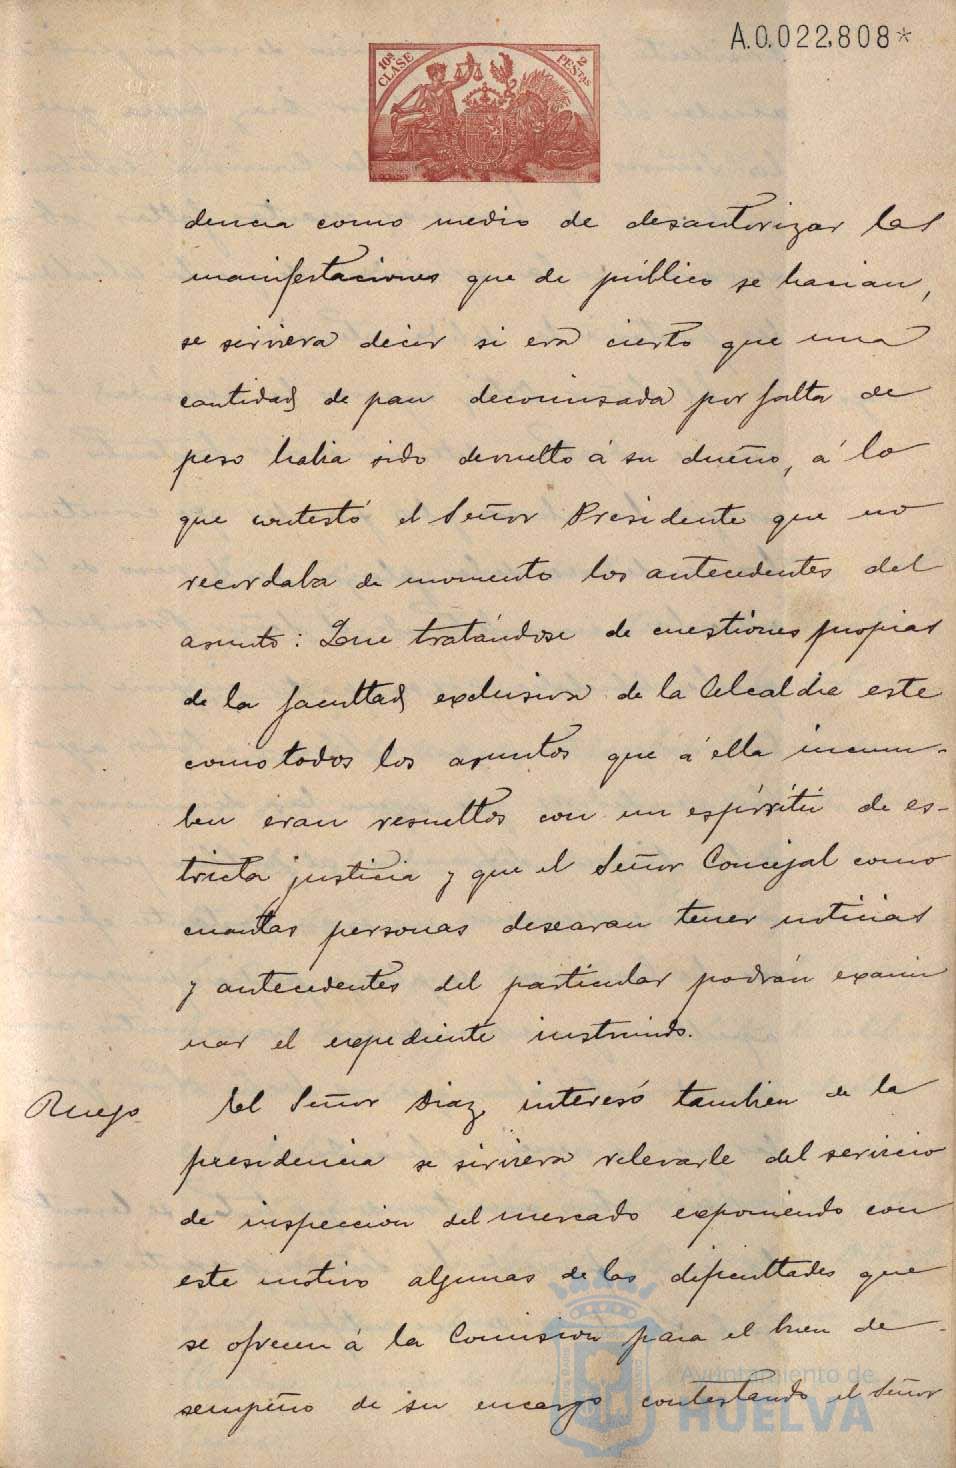 A.0.022,808*
10ª CLASE 2 PESTAS
dencia como medio de desautorizar las
manifestaciones que de público se hacian,
se sirviera decir si era cierto que una
cantidad de pan decomisada por falta de
peso habia sido devuelto á su dueño, á lo
que contestó el Señor Presidente que no
recordaba de momento los antecedentes del
asunto: Que tratándose de cuestiones propias
de la facultad exclusiva de la Alcaldia este
como todos los asuntos que á ella incum-
ben eran resueltos con un espírritú de es-
tricta justicia y que el Señor Concejal como
cuantas personas desearan tener noticias
y antecedentes del particular podrán exami
nar el expediente instruido.
Ruego El Señor Diaz interesó tambien de la
presidencia se sirviera relevarle del servicio
de inspeccion del mercado exponiendo con
este motivo algunas de las dificultades que
se ofrecen á la Comision para el buen de-
sempeño de su encargo contestando el Señor
Ayuntamiento de
HUELVA